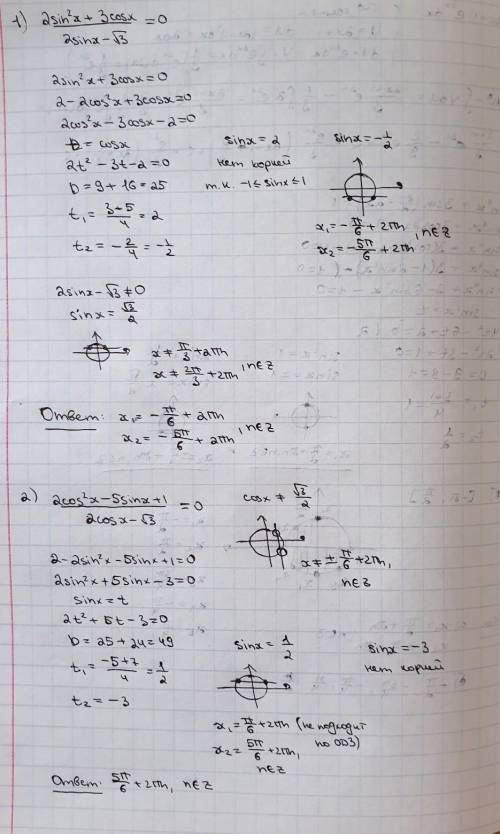 1) (2sin²x + 3cosx)/(2sinx - √3) = 0
2sin²x + 3cosx = 0
2 - 2cos²x + 3cosx = 0
2cos²x - 3cosx - 2 = 0
t = cosx
2t² - 3t - 2 = 0
D = 9 + 16 = 25
t₁ = (3+5)/4 = 2
t₂ = -2/4 = -1/2
sinx = 2
нет корней
т.к. -1 ≤ sinx ≤ 1
sinx = -1/2
x₁ = -π/6 + 2πn
x₂ = -5π/6 + 2πn, n∈Z
2sinx - √3 ≠ 0
sinx = √3/2
x ≠ π/3 + 2πn
x ≠ 2π/3 + 2πn, n∈Z
Ответ: x₁ = -π/6 + 2πn
x₂ = -5π/6 + 2πn, n∈Z
2) (2cos²x - 5sinx + 1)/(2cosx - √3) = 0
2 - 2sin²x - 5sinx + 1 = 0
2sin²x + 5sinx - 3 = 0
sinx = t
2t² + 5t - 3 = 0
D = 25 + 24 = 49
t₁ = (-5+7)/4 = 1/2
t₂ = -3
cosx ≠ √3/2
x ≠ ± π/6 + 2πn,
n∈Z
sinx = 1/2
x₁ = π/6 + 2πn (не подходит
по ОДЗ)
x₂ = 5π/6 + 2πn,
n∈Z
sinx = -3
нет корней
Ответ: 5π/6 + 2πn, n∈Z